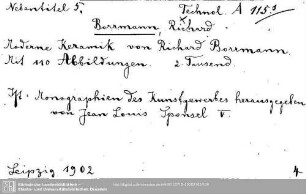 Nebentitel 5.
Technol. A 115 s
Borrmann, Richard
Moderne Keramik von Richard Borrmann.
Mit 110 Abbildungen. 2. Tausend
Ist: Monographien des Kunstgewerbes herausgegeben
von Jean Louis Sponsel V.
Leipzig 1902
4.